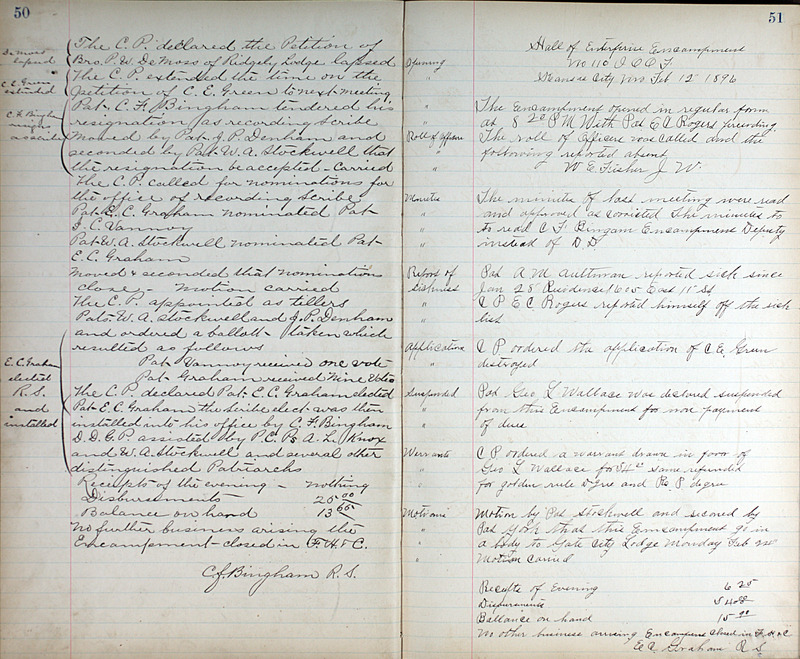 50
De Moss
lapsed
C. E. Green
extended
C. F. Bingham
resigns
as scribe
The C. P. declared the Petition of
Bro. P. W. De Moss of Ridgely Lodge lapsed
The C. P. extended the time on the
petition of C. E. Green to next meeting
Pat. C. F. Bingham tendered his
resignation as recording Scribe
Moved by Pat. J. P. Denham and
seconded by Pat. W. A. Stockwell that
the resignation be accepted - Carried
The C. P. called for nominations for
the office of recording Scribe
Pat. E. C. Graham nominated Pat.
J. C. Vannoy
Pat. W. A. Stockwell nominated Pat.
E. C. Graham
moved & seconded that nominations
close, - Motion carried
The C. P. appointed as tellers
Pats. W. A. Stockwell and J. P. Denham
and ordered a ballott taken which
resulted as follows
Pat. Vannoy received one vote
Pat. Graham received Nine Votes
E. C. Graham
elected
R. S.
and
installed
The C. P. declared Pat. E. C. Graham elected
Pat. E. C. Graham the scribe elect was then
installed into his office by C. F. Bingham
D. D. G. P. assisted by P. C. P's A. L. Knox
and W. A. Stockwell and several other
distinguished Patriarchs
Receipts of the evening - nothing
Disbursements 25 00
Balance on hand 13 65
No further business arising the
Encampment closed in F. H. & C.
C. F. Bingham R. S.
51
Hall of Enterprise Encampment
No 110 I O O F
Kansas City Mo Feb 12 1896
Opening
" The Encampment opened in regular form
" at 8 20 P M With Pat E C Rogers presiding
Roll of officers The roll of Officers was called and the
" following reported absent
" W E Fisher J W
Minutes The minutes of last meeting were read
" and approved as corrected The minutes to
" to read C F Bingam Encampment Deputy
" instead of D D
Report of Pat A M Aultman reported sick since
Sickness Jan 28 Residence 1605 East 11 St
" C P E C Rogers reported himself off the sick
" list
Application C P ordered the application of C E Green
" destroyed
Suspended Pat Geo L Wallace was declared suspended
" from this Encampment for non payment
" of dues
Warrants C P ordered a warrant drawn in favor of
" Geo L Wallace for same refunded
" for golden rule degree and R. P degree
Motions Motion by Pat Stockwell and seconed by
" Pat York that this Emcampment go in
" a body to Gate City Lodge Monday Feb
" Motion carried
Receipts of Evening 6 25
Disbursements
Ballance on hand
No other business arriving Encampment closed in F H & C
E C Graham R S